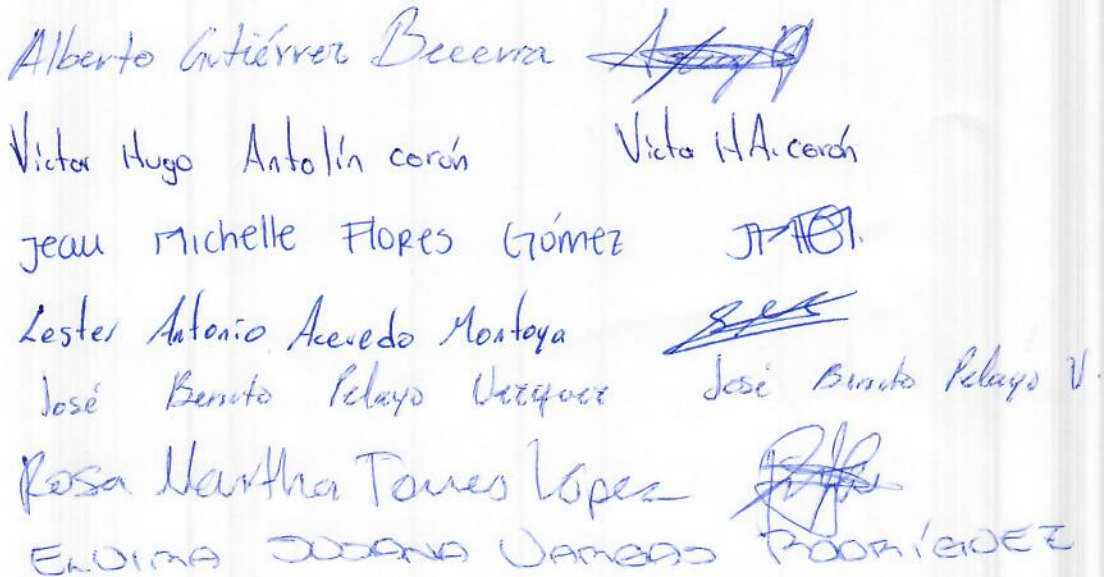 Alberto Gutiérrez Becerra
Victor Hugo Antolín corón Victo H A. corón
Jean Michelle Flores Gómez
Lester Antonio Acevedo Montoya
José Benito Pelayo Vazquez José Benito Pelayo V.
Rosa Martha Torres López
SUSANA VARGAS RODRÍGUEZ